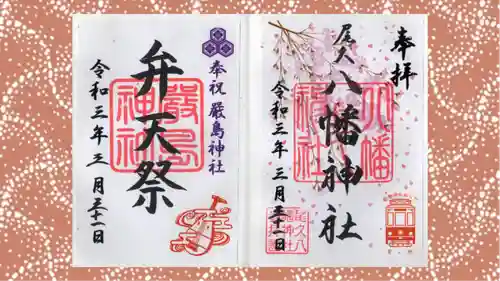 奉拝
尾久八幡神社
八幡神社
令和三年三月三十一日
奉祝 厳島神社
弁天祭
嚴島神社
令和三年三月三十一日